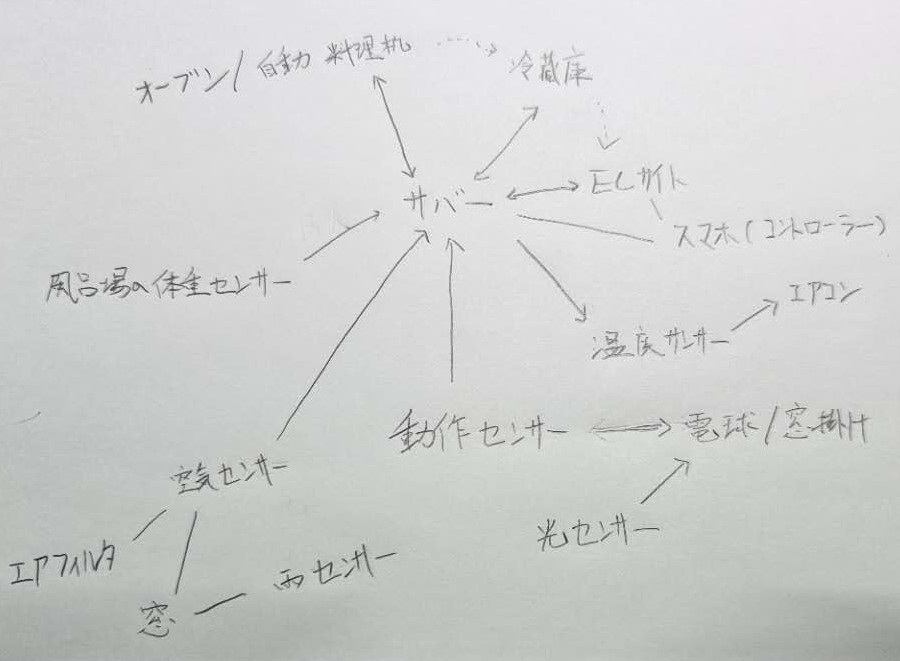 オーブン/自動料理机
冷蔵庫
サバー
ECサイト
スマホ(コントローラー)
風呂場の体重センサー
エアコン
温度サンサー
動作センサー
電球/窓掛け
空気センサー
光センサー
エアフィルタ
雨センサー
窓